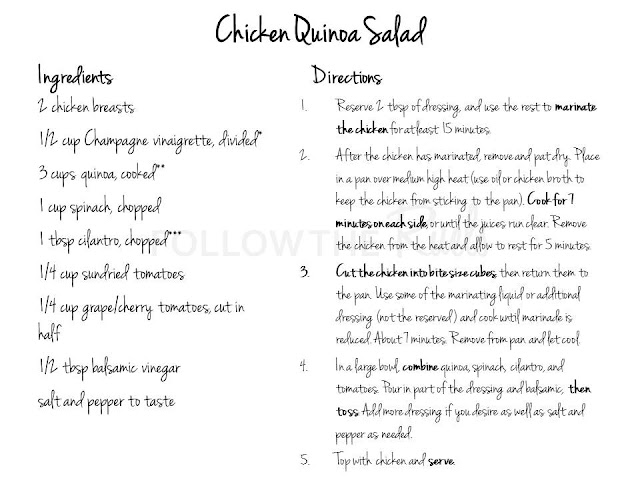 Chicken Quinoa Salad
Ingredients
2 chicken breasts
1/2 cup Champagne vinaigrette, divided*
3 cups quinoa, cooked**
1 cup spinach, chopped
1 tbsp cilantro, chopped***
1/4 cup sundried tomatoes
1/4 cup grape/cherry tomatoes, cut in
half
1/2 tbsp balsamic vinegar
salt and pepper to taste
Directions
1. Reserve 2 tbsp of dressing, and use the rest to marinate
the chicken for atleast 15 minutes.
2. After the chicken has marinated, remove and pat dry. Place
in a pan over medium high heat (use oil or chicken broth to
keep the chicken from sticking to the pan). Cook for 7
minutes on each side, or until the juices run clear. Remove
the chicken from the heat and allow to rest for 5 minutes.
3. Cut the chicken into bite size cubes, then return them to
the pan. Use some of the marinating liquid or additional
dressing (not the reserved) and cook until marinade is
reduced. About 7 minutes. Remove from pan and let cool.
4. In a large bowl, combine quinoa, spinach, cilantro, and
tomatoes. Pour in part of the dressing and balsamic, then
toss. Add more dressing if you desire as well as salt and
pepper as needed.
5. Top with chicken and serve.
FOLLOW THE